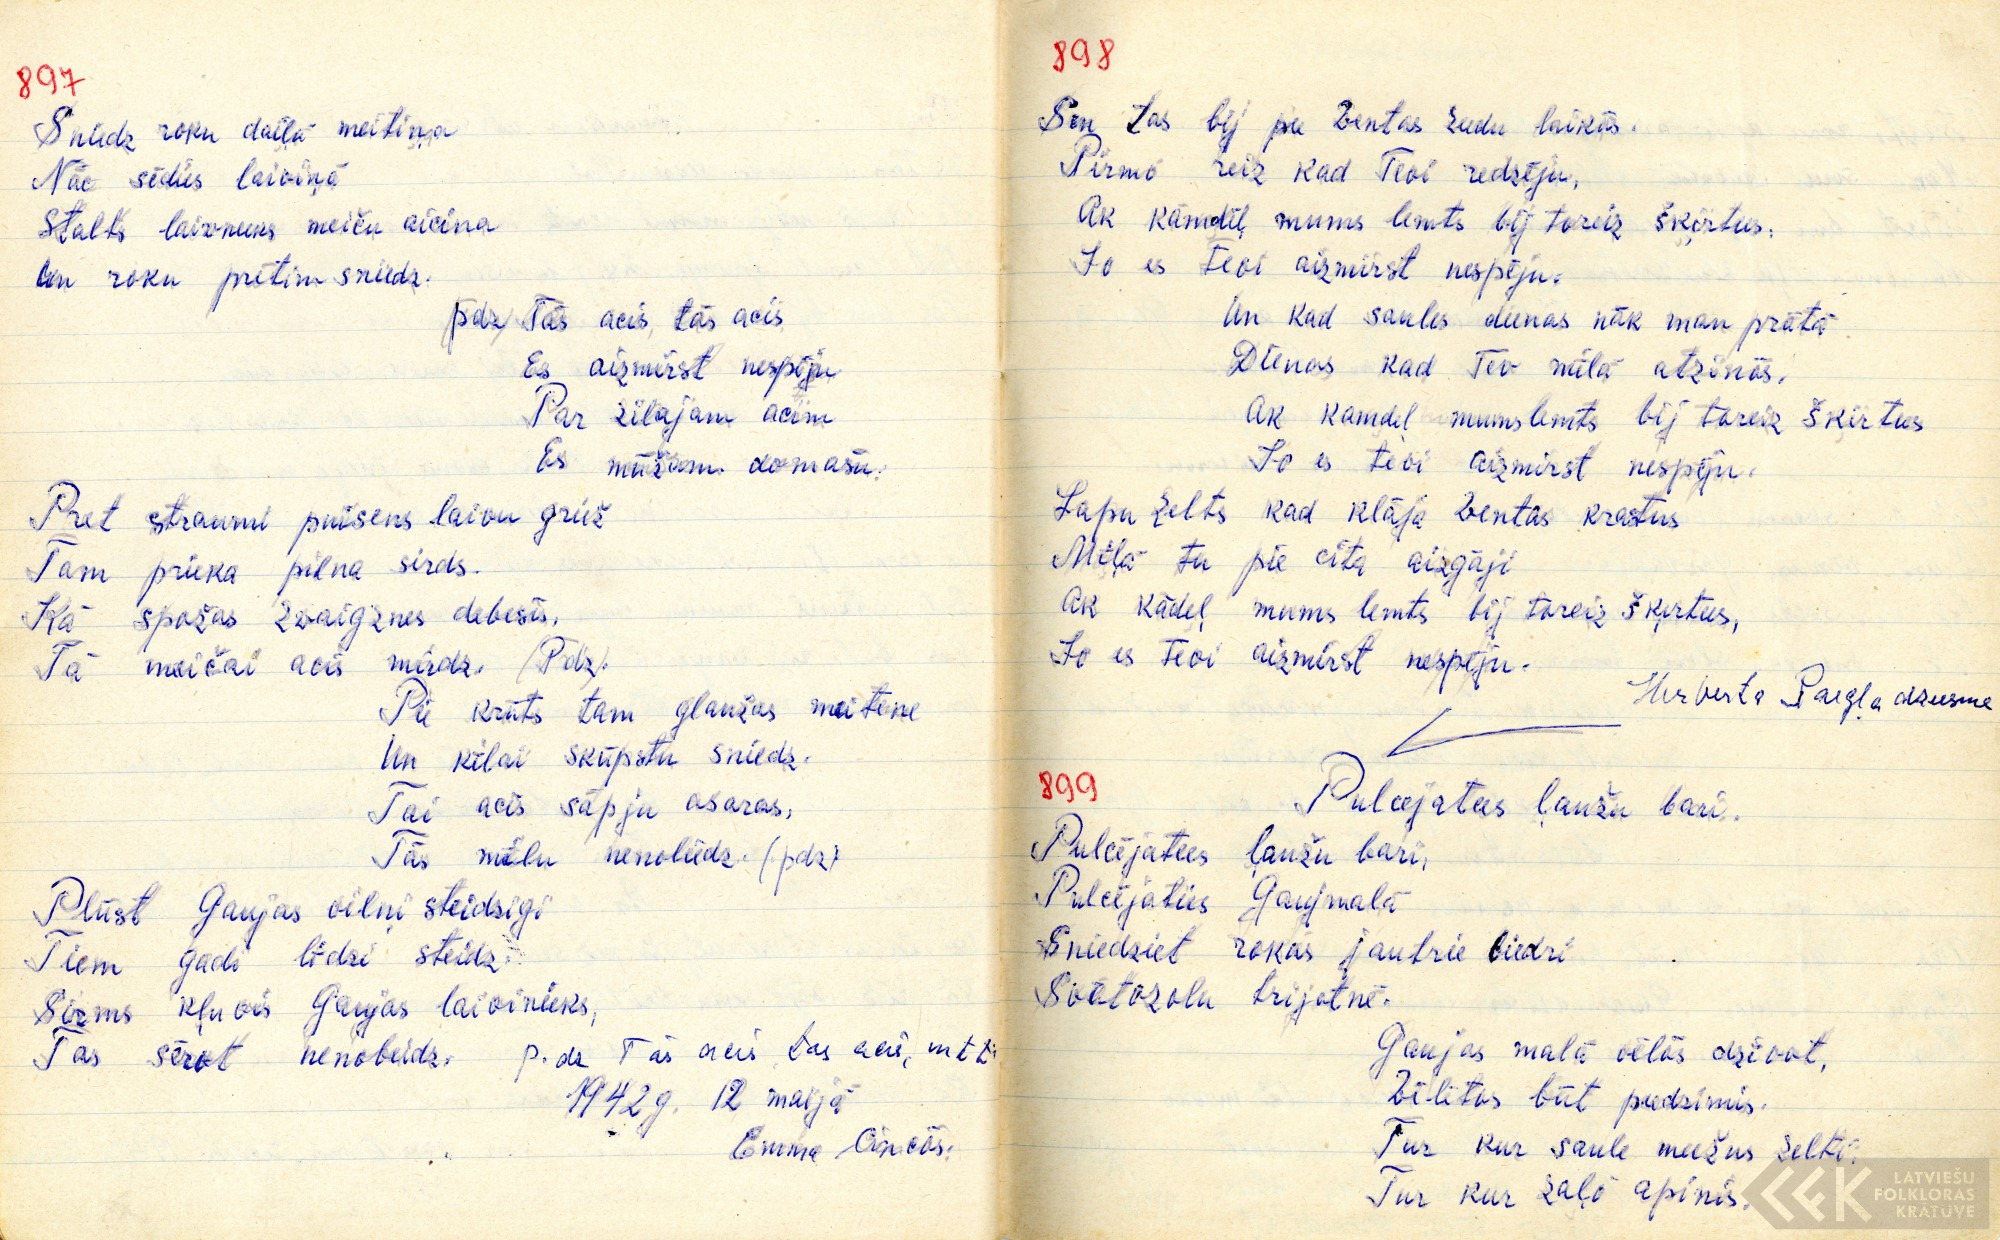 897
Sniedz roku daiļā meitiņa
Nāc sēdies laiviņā
Stalts laivnieks meiču aicina
Un roku pretim sniedz.
(pdz) Tās acis, tās acis
Es aizmirst nespēju
Par zilajam acim
Es mūžam domašu.
Pret straumi puisens laivu griež
Tam prieka pilna sirds.
Kā spožas zvaigznes debesīs,
Tā meičai acis mirdz. (Pdz).
Pie krūts tam glaužas meitene
Un kēlai skūpstu sniedz.
Tai acīs sāpju asaras,
Tās mēlu nenoliedz. (pdz)
Plūst Gaujas viļņi steidzīgi
Tiem gadi līdzi steidz.
Sirms kļuvis Gaujas laivinieks,
Tas sērot nenobeidz. p.dz Tās acis tas acis, u t t.
1942 g. 12 maijā
Emma
898
Sen tas bij pie Ventas ziedu laikās.
Pirmo reiz kad Tevi redzēju,
Ak kāmdēļ mums lemts bij toreiz šķirties.
Jo es Tevi aizmirst nespēju.
Un kad saules dienas nāk man prātā
Dienas kad Tev mīlā atzinos.
Ak kamdēl mums lemts bij toreiz šķirties
Jo es tevi aizmirst nespēju.
Lapu zelts kad klāja Ventas krastus
Mīļā tu pie cita aizgāji
Ak kādeļ mums lemts bij toreiz šķirties,
Jo es tevi aizmirst nespēju.
Herberta Paegļa dziesma
899
Pulcejaties ļaužu bari.
Pulcējaties ļaužu bari,
Pulcējaties Gaujmalā
Sniedziet rokas jautrie biedri
Svētozolu trijotnē.
Gaujas malā vēlos dzīvot,
Zī-lētas būt piedzimis.
Tur kur saule mežus zelti.
Tur kur zaļo apinis.
LATVIEŠU
FOLKLORAS
KRĀTUVE